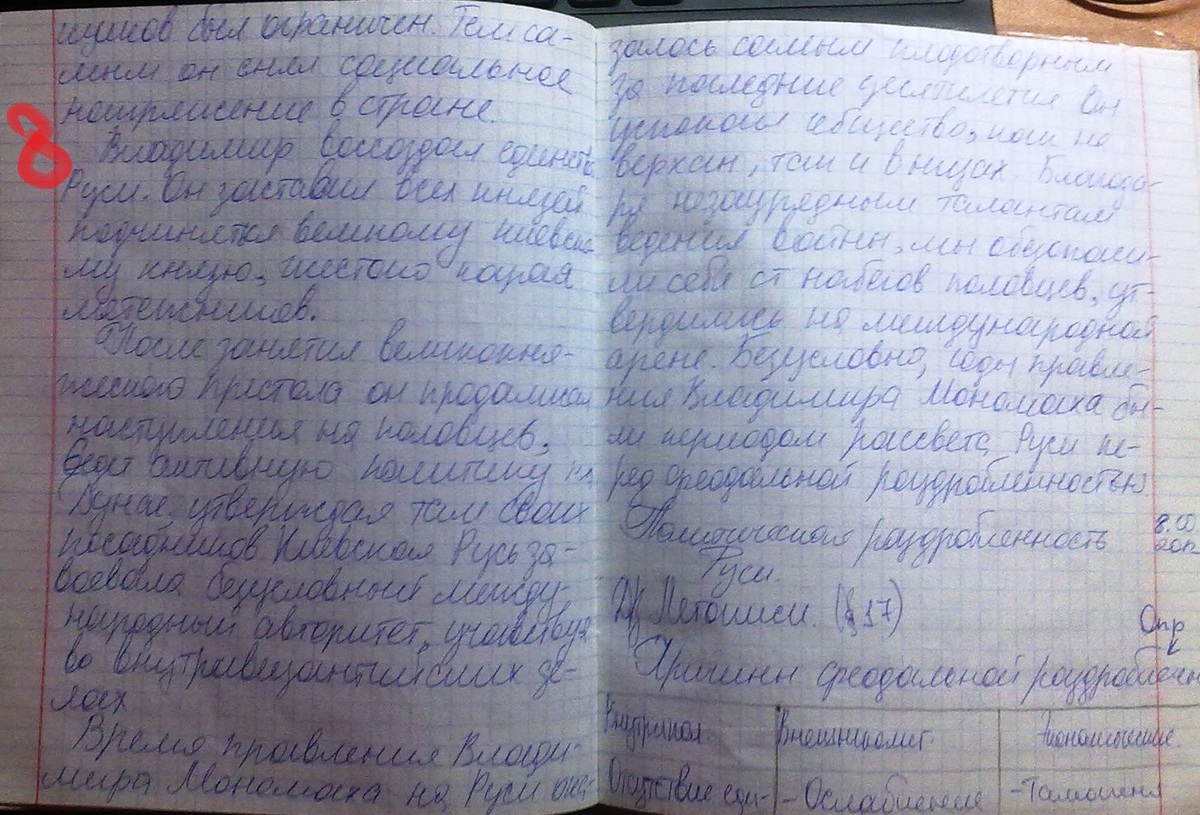 щиков был ограничен. Тем са-
мым он снял социальное
напряжение в стране.
8
Владимир воссоздал единств
Руси. Он заставил всех князей
подчинятся великому киевско
му князю, жестоко карая
мятежников.
После занятия великокня-
жеского престола он продолжал
наступленья на половцев,
ведя активную политику на
Дунае, утверждая там своих
посадников Киевская Русь за-
воевала безусловный между-
народный авторитет, участвуя
во внутривизантийских де-
лах
Время правления Влади-
мира Мономаха на Руси ока-
залось самым плодотворным
за последние десятилетия Он
успокоил общество, как на
верхах, так и в низах. Благода-
ря незаурядным талантам
ведения войны, мы обезопаси-
ли себя от набегов половцев, ут-
вердились на международной
арене. Безусловно, годы правле-
ния Владимира Мономаха бы-
ли периодом рассвета Руси пе-
ред феодальной раздробленностью
Политическая раздробленность
Руси.
Д/з Летописи. (§ 17)
Опр
к
Причины феодальной раздроблен
Внутрипол. Внешнеполит Экономические.
Отсутствие еди- - Ослабление - Таможня